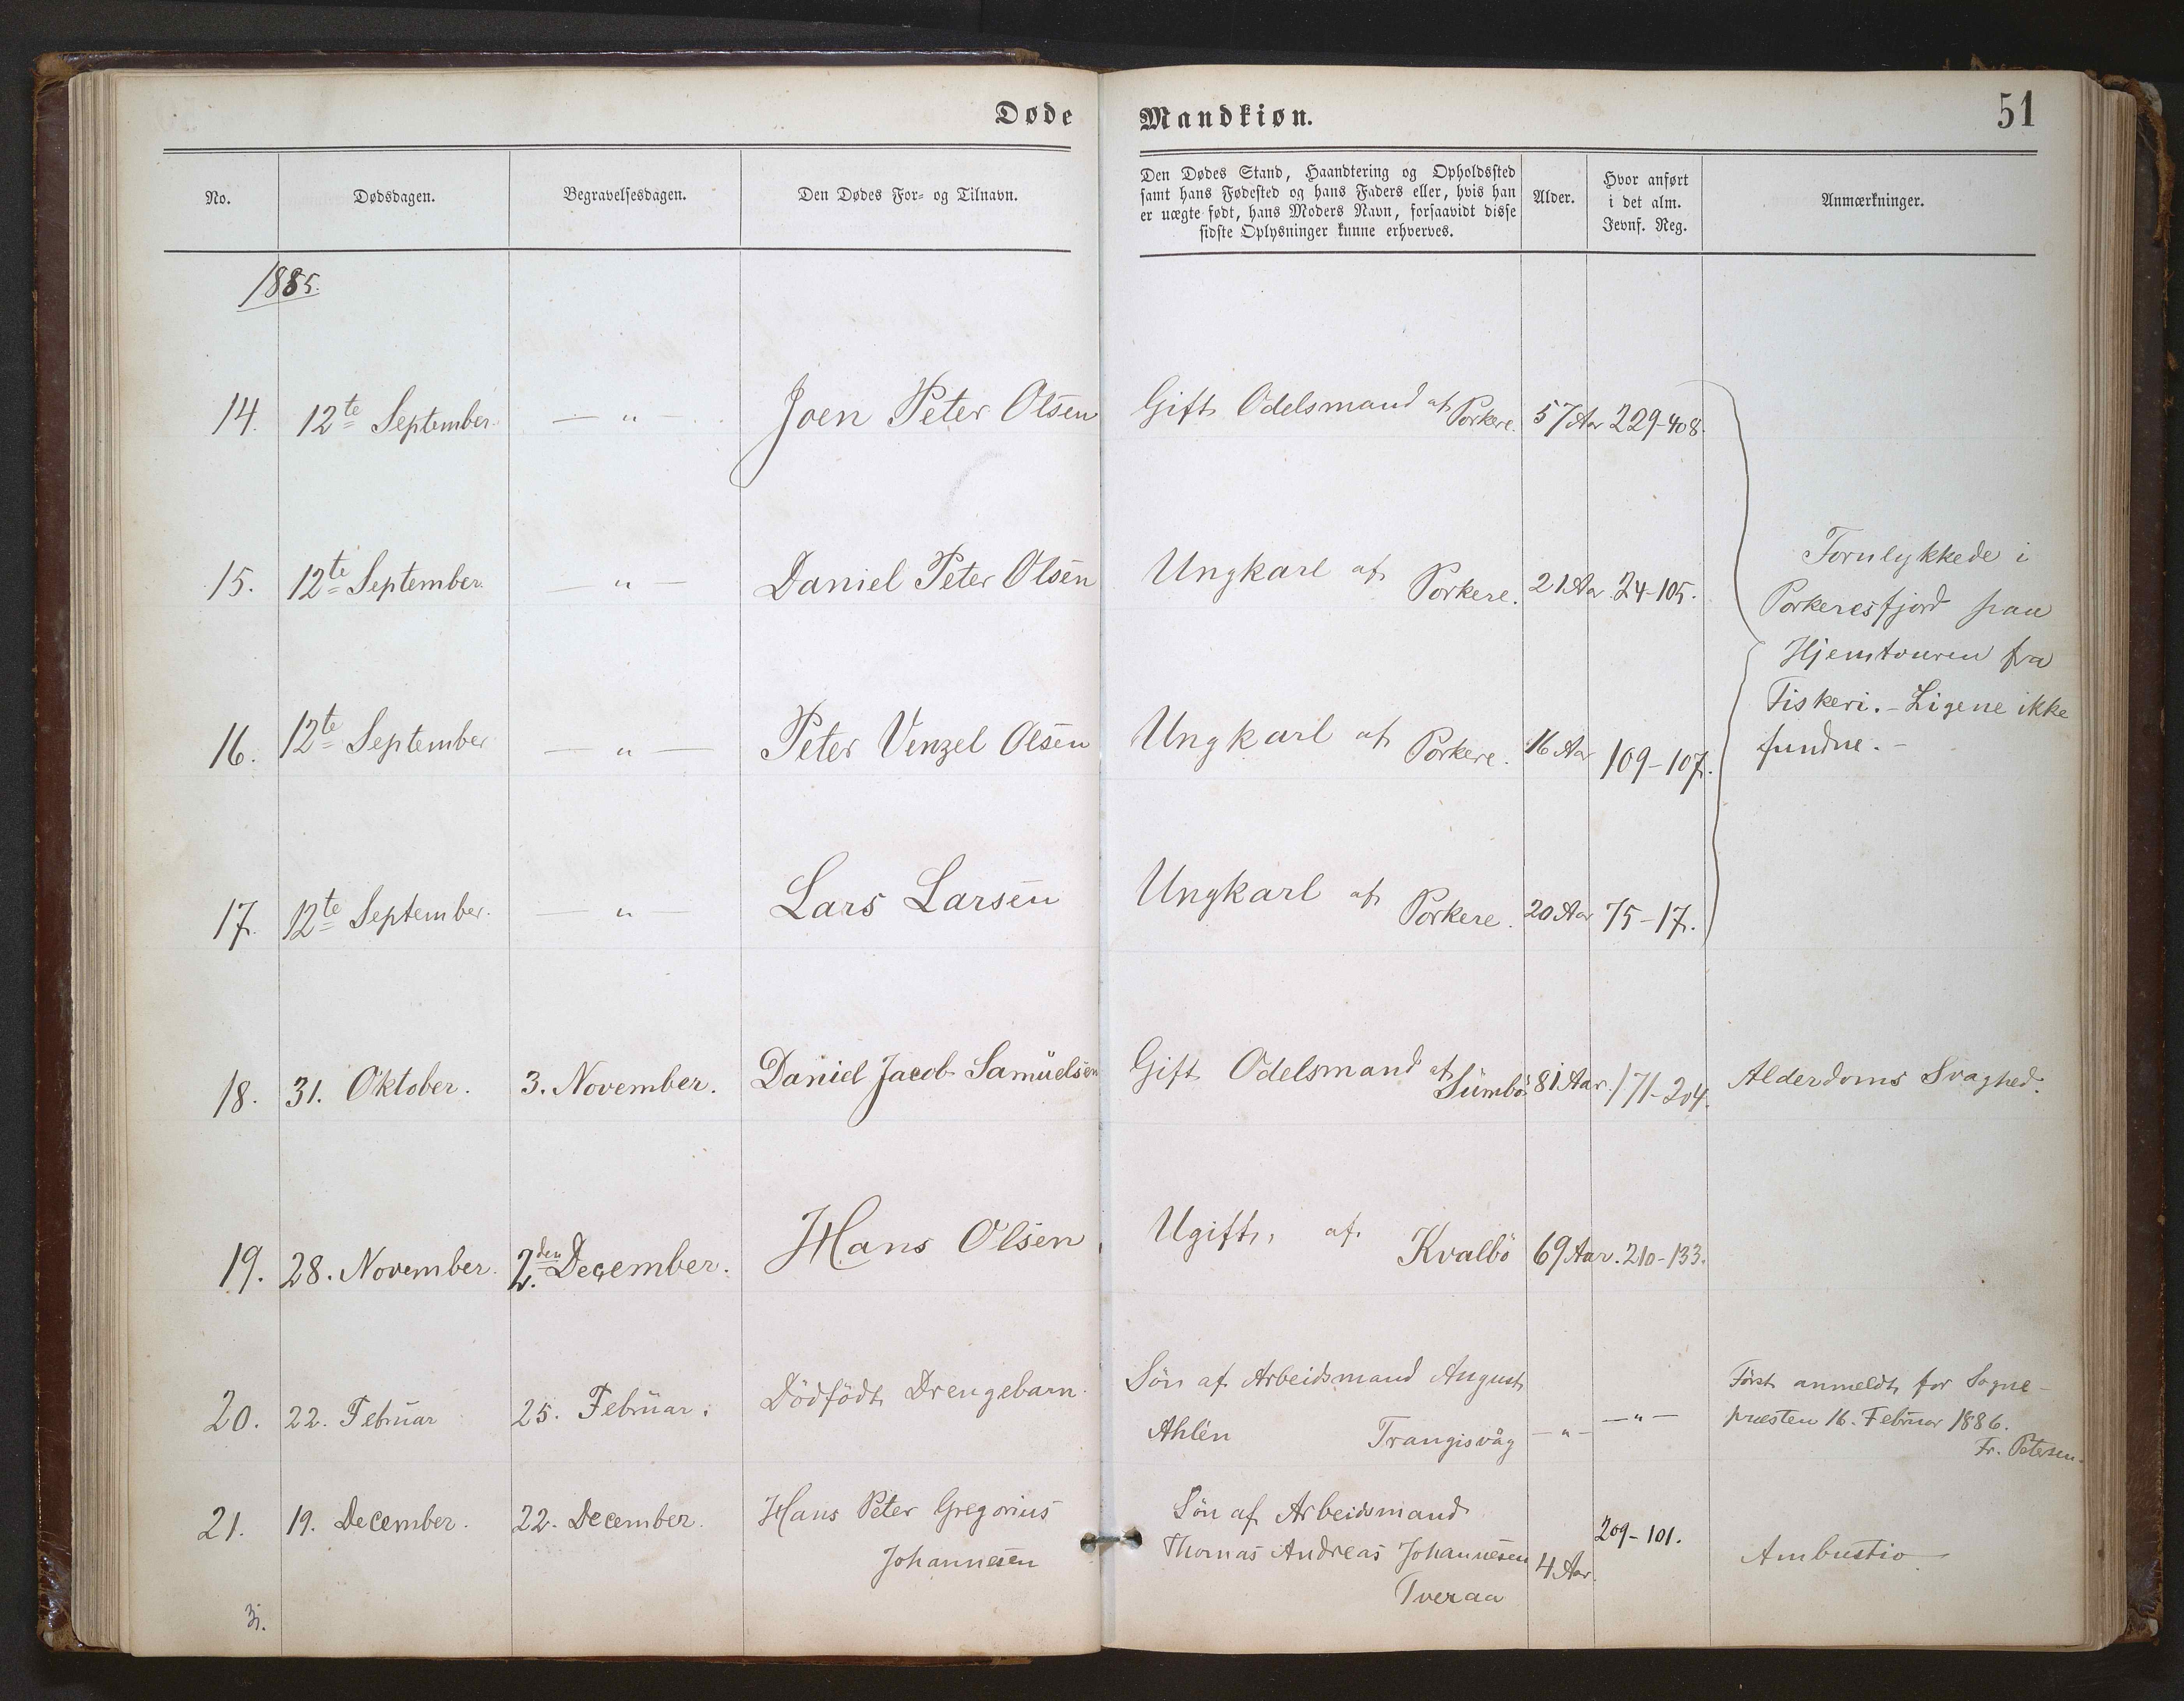 Døde
Mandkiøn.
51
No.
Dødsdagen.
Begravelsesdagen.
Den Dødes For- og Tilnavn.
Den Dødes Stand, Haandtering og Opholdssted
samt hans Fødested og hans Faders eller, hvis han
er uægte født, hans Moders Navn, forsaavidt disse
sidste Oplysninger kunne erhverves.
Alder.
Hvor anført
i det alm.
Jevnf. Reg.
Anmærkninger.
1885.
14. 12te September. — " — Joen Peter Olsen Gift Odelsmand af Porkere. 57 Aar 229-408.
15. 12te September. — " — Daniel Peter Olsen Ungkarl af Porkere. 21 Aar 24-105.
Forulykkede i
Porkeresfjord paa
Hjemtouren fra
Fiskeri. - Ligene ikke
fundne. -
16. 12te September — " — Peter Venzel Olsen Ungkarl af Porkere. 16 Aar 109-107.
17. 12te September. — " — Lars Larsen Ungkarl af Porkere. 20 Aar 75-17.
18. 31. Oktober. 3. November. Daniel Jacob Samuelsen Gift Odelsmand af Sumbö 81 Aar. 171-204. Alderdoms Svaghed.
19. 28. November. 2den December. Hans Olsen Ugift, af Kvalbö 69 Aar. 210-133.
20. 22. Februar 25. Februar. Dödfödt Drengebarn. Sön af Arbeidsmand August
Ahlén Trangisvåg — " — — " —
Först anmeldt for Sogne-
præsten 16. Februar 1886.
Fr. Petersen.
21. 19. December. 22. December. Hans Peter Gregorius
Johannesen
Sön af Arbeidsmand
Thomas Andreas Johannesen
Tveraa
4 Aar. 209-101. Ambustio